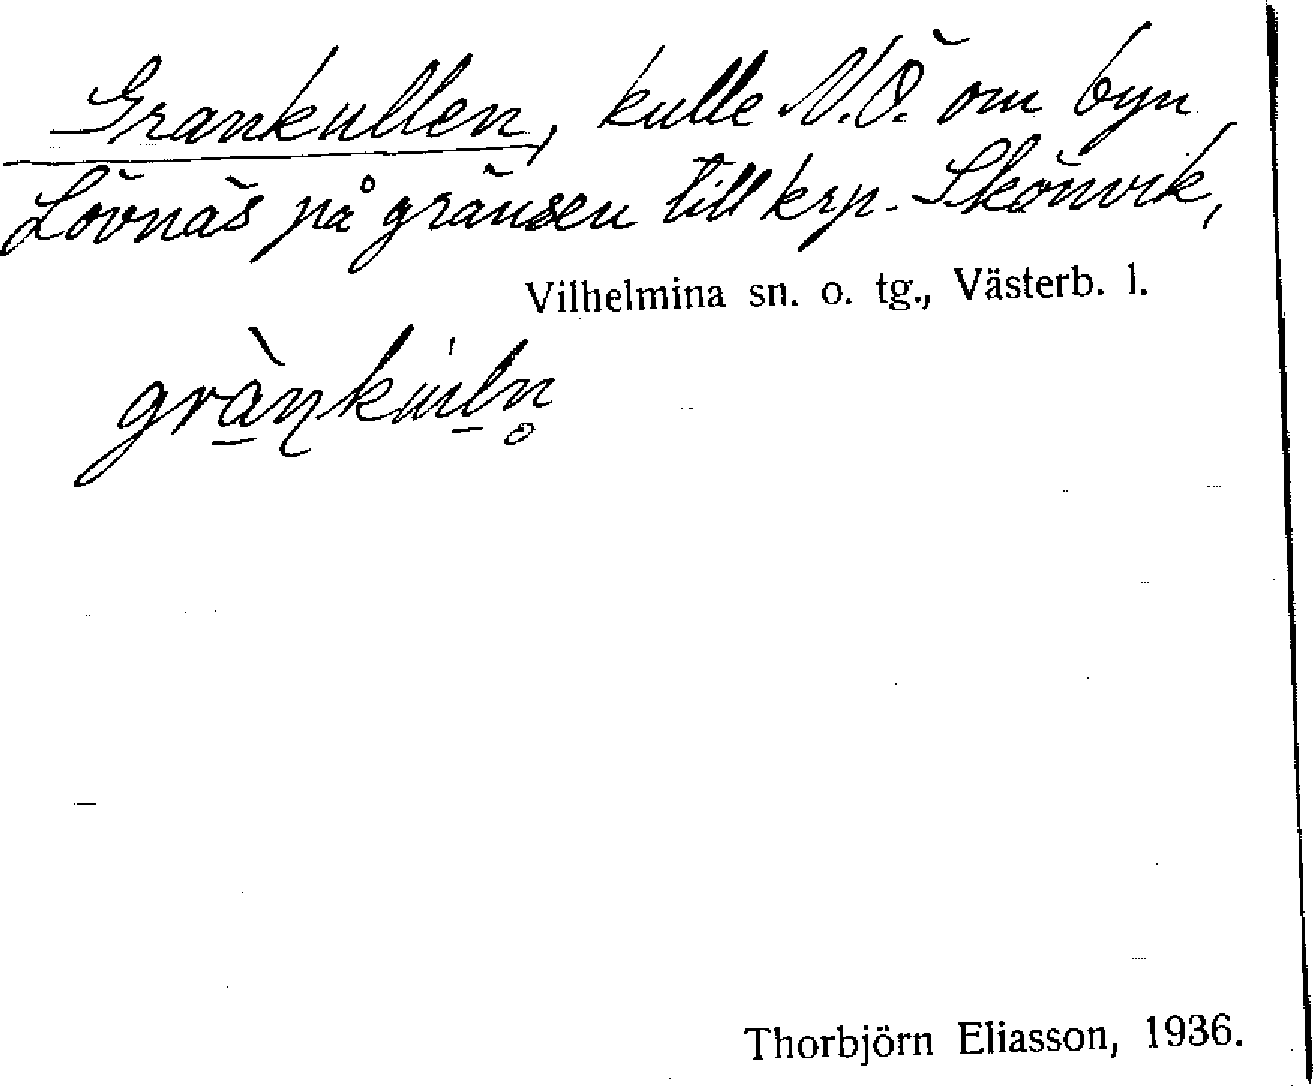 Grankullen, kulle N.Ö. om byn
Lövnäs på gränsen till krp. Skönvik,
Vilhelmina sn. o. tg., Västerb. l.
Thorbjörn Eliasson, 1936.